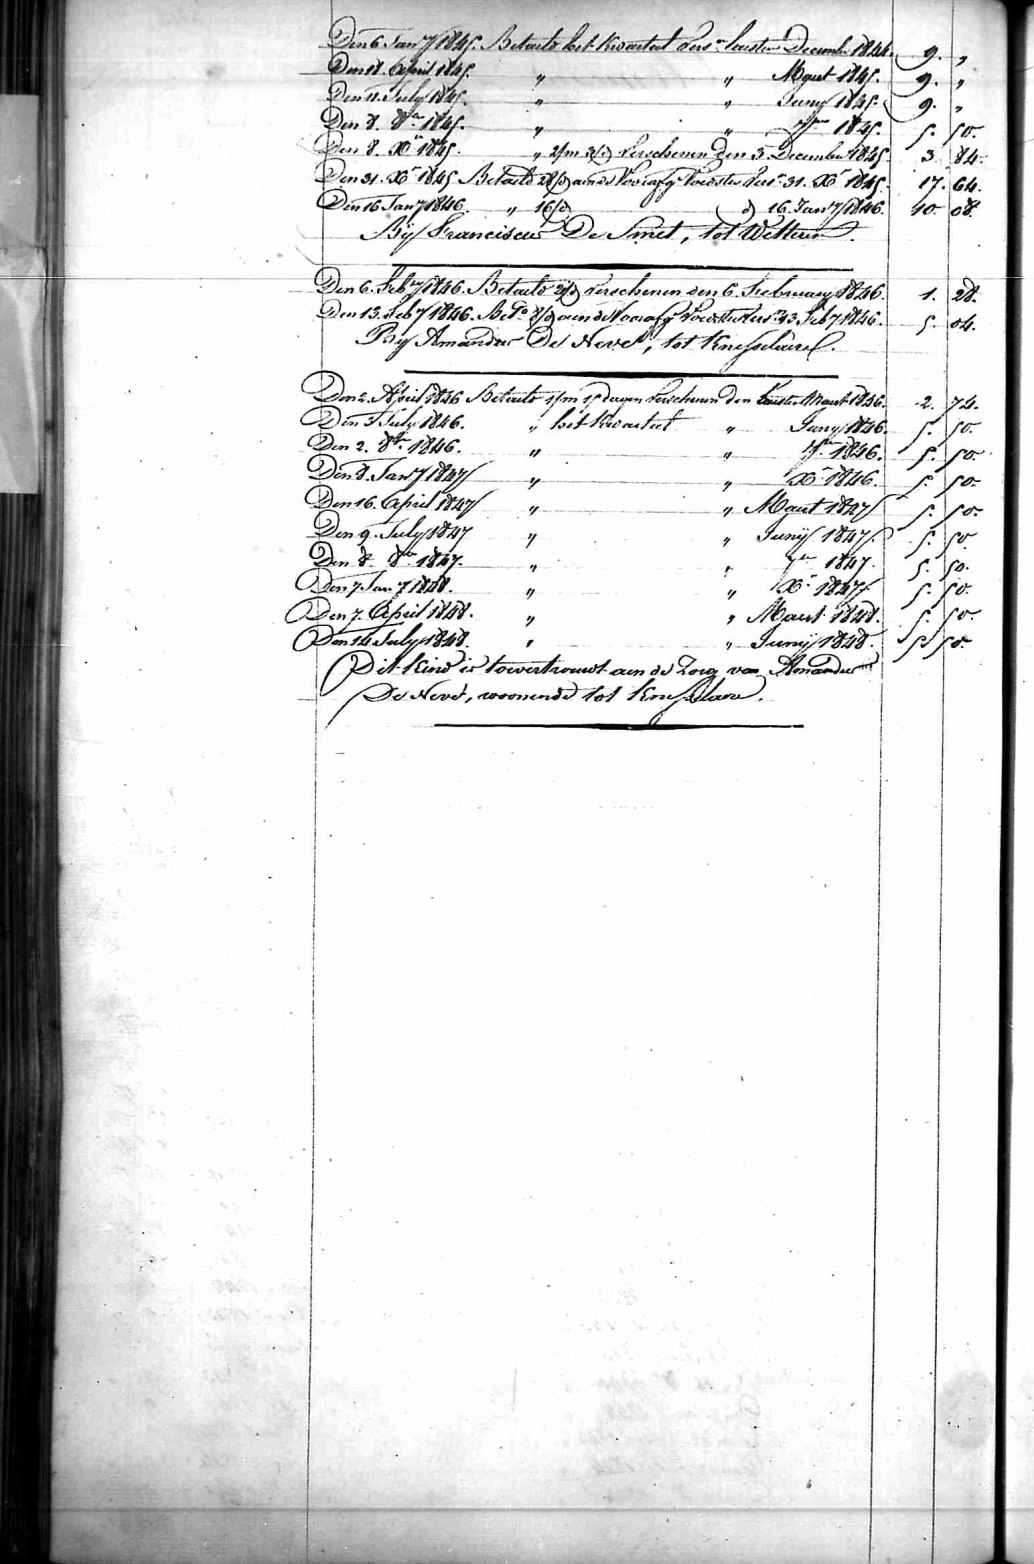 Den 6. Jan.y 1845. Betaeld het kwartael vers.n laesten December 1844. 9. „
Den 18. April 1845. „ „ Maert 1845. 9. „
Den 11. July 1845. „ „ Juny 1845. 9. „
Den 8. 8.er 1845. „ „ 7.er 1845. 5. 50.
Den 8. X.r 1845. „ 2/m verschenen den 3. December 1845 3. 84.
Den 31. X.r 1845 Betaeld aen de Voedster vers.n 31. X.r 1845. 17. 64.
Den 16 Jan.y 1846. „ 16 16. Jan.y 1846. 10. 08.
Bij Franciscus De Smet, tot Wetteren.
Den 6. Feb.y 1846. Betaeld verschenen den 6. February 1846. 1. 28.
Den 13. Feb.y 1846. Bet.d aen de Voedster vers.n 13 Feb.y 1846. 5. 04.
Bij Amandus De Neve, tot Knesselaere.
Den 2. April 1846 Betaeld 1/m 15 dagen verschenen den laesten Maert 1846. 2. 74.
Den 3 July 1846. „ het kwartael „ Juny 1846. 5. 50.
Den 2. 8.er 1846. „ „ 7.er 1846. 5. 50.
Den 8. Jan.y 1847 „ „ X.r 1846. 5. 50.
Den 16. April 1847 „ „ Maert 1847 5. 50.
Den 9. July 1847 „ „ Junij 1847. 5. 50.
Den 8. 8.er 1847. „ „ 7.er 1847. 5. 50.
Den 7. Jan.y 1848. „ „ X.r 1847 5. 50.
Den 7. April 1848. „ „ Maert 1848. 5. 50.
Den 14 July 1848. „ „ Junij 1848. 5. 50.
Dit kind is toevertrouwt aen de zorg van Amandus
De Neve, woonende tot Knesselare.